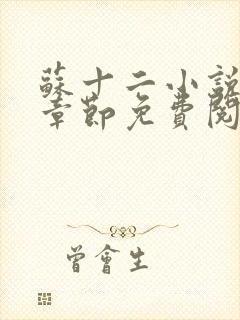 蘇十二小說
章節免費閱
曾會生